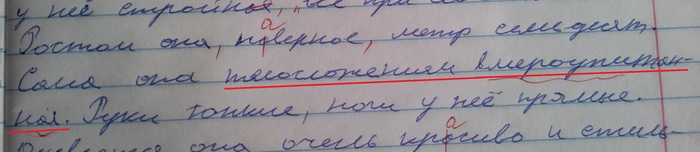 у неё стройная, не при
Ростом она, наверное, метр семьдесят.
Сама она телосложением вмероупитан-
ная. Руки тонкие, ноги у неё прямые.
она очень красиво и стиль-